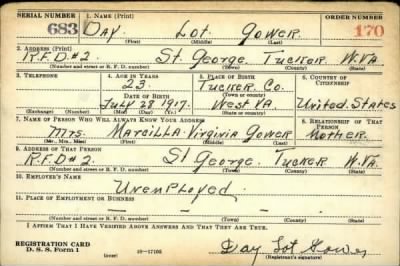 SERIAL NUMBER 1. NAME (Print) ORDER NUMBER
683 Day Lot Gower 170
(First) (Middle) (Last)
2. ADDRESS (Print)
R.F.D.#2 St. George Tucker W.VA
(Number and street or R. F. D. number) (Town) (County) (State)
3. TELEPHONE 4. AGE IN YEARS 5. PLACE OF BIRTH 6. COUNTRY OF CITIZENSHIP
23 Tucker Co.
DATE OF BIRTH (Town or county)
July 28 1917. West VA. United States
(Exchange) (Number) (Mo.) (Day) (Yr.) (State or country)
7. NAME OF PERSON WHO WILL ALWAYS KNOW YOUR ADDRESS 8. RELATIONSHIP OF THAT PERSON
Mrs. Marcilla Virginia Gower Mother.
(Mr., Mrs., Miss) (First) (Middle) (Last)
9. ADDRESS OF THAT PERSON
R.F.D#2. St George. Tucker W.VA.
(Number and street or R. F. D. number) (Town) (County) (State)
10. EMPLOYER'S NAME
Unemployed.
11. PLACE OF EMPLOYMENT OR BUSINESS
— — — —
(Number and street or R. F. D. number) (Town) (County) (State)
I AFFIRM THAT I HAVE VERIFIED ABOVE ANSWERS AND THAT THEY ARE TRUE.
REGISTRATION CARD
D. S. S. Form 1 (over) 16—17105 Day Lot Gower
(Registrant's signature)